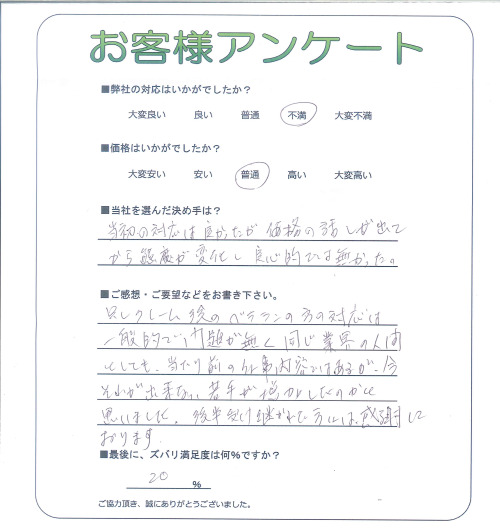 お客様アンケート
■弊社の対応はいかがでしたか?
大変良い 良い 普通 不満 大変不満
■価格はいかがでしたか?
大変安い 安い 普通 高い 大変高い
■当社を選んだ決め手は?
当初の対応は良かったが 価格の話しが出て
から態度が変化し良心的では無かった。
■ご感想・ご要望などをお書き下さい。
クレーム後のベテランの方の対応は
一般的で問題が無く同じ業界の人間
としても、当たり前の仕事内容ではあるが、今
それが出来ない若手が増加したのかと
思いました。後半受け継がれた方には、感謝して
おります。
■最後に、ズバリ満足度は何%ですか?
20 %
ご協力頂き、誠にありがとうございました。